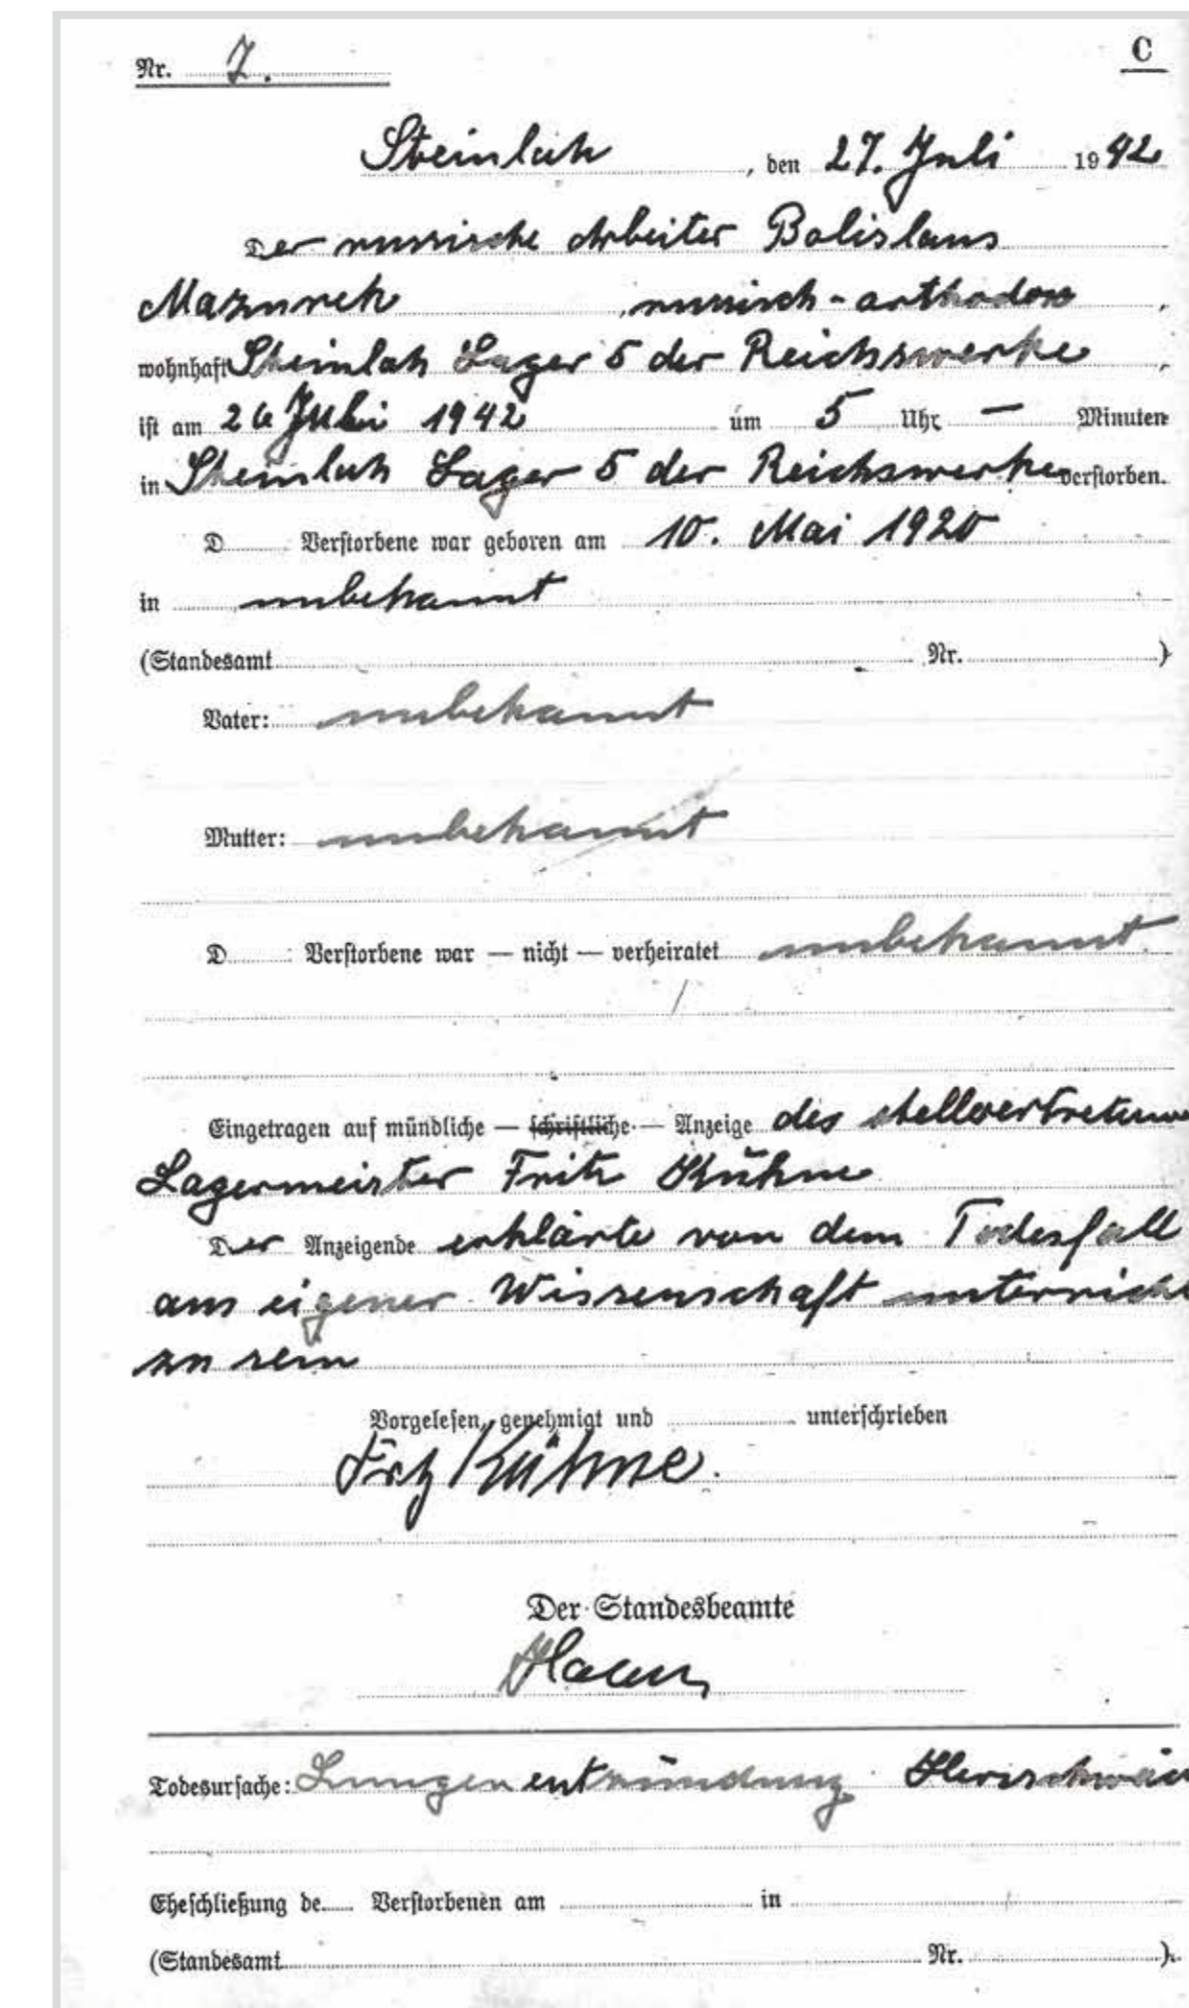 Nr. 7.
C
Steinlah, den 27. Juli 1942
Der russische Arbeiter Bolislaus
Mazurek, russisch-orthodox,
wohnhaft Steinlah Lager 5 der Reichswerke,
ist am 26 Juli 1942 um 5 Uhr — Minuten
in Steinlah Lager 5 der Reichswerke verstorben.
D Verstorbene war geboren am 10. Mai 1920
in unbekannt
(Standesamt Nr. )
Vater: unbekannt
Mutter: unbekannt
D Verstorbene war — nicht — verheiratet unbekannt
Eingetragen auf mündliche — schriftliche — Anzeige des stellvertreten
Lagermeister Fritz Kühne
Der Anzeigende erklärte von dem Todesfall
aus eigener Wissenschaft unterricht
zu sein
Vorgelesen, genehmigt und unterschrieben
Fritz Kühne.
Der Standesbeamte
Todesursache: Lungenentzündung Herzschwäc
Eheschließung de Verstorbenen am in
(Standesamt Nr. ).